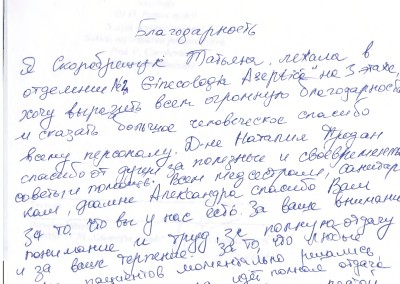 Благодарность
Я Скоробрещук Татьяна, лежала в
отделении №2 Ginecologia Aseptică" на 3 этаже,
хочу выразить всем огромную благодарность
и сказать большое человеческое спасибо
всему персоналу. Д-не Наталия Продан
спасибо от души за полезные и своевременн
советы и помощь. Всем медсестрам, санитар
кам, доамне Александра спасибо Вам
За то, что вы у нас есть. За ваше внимание
понимание и труд, За полную отдачу
и за ваше терпение. За то, что любые
пациентов моментально решались
идёт полная отдача